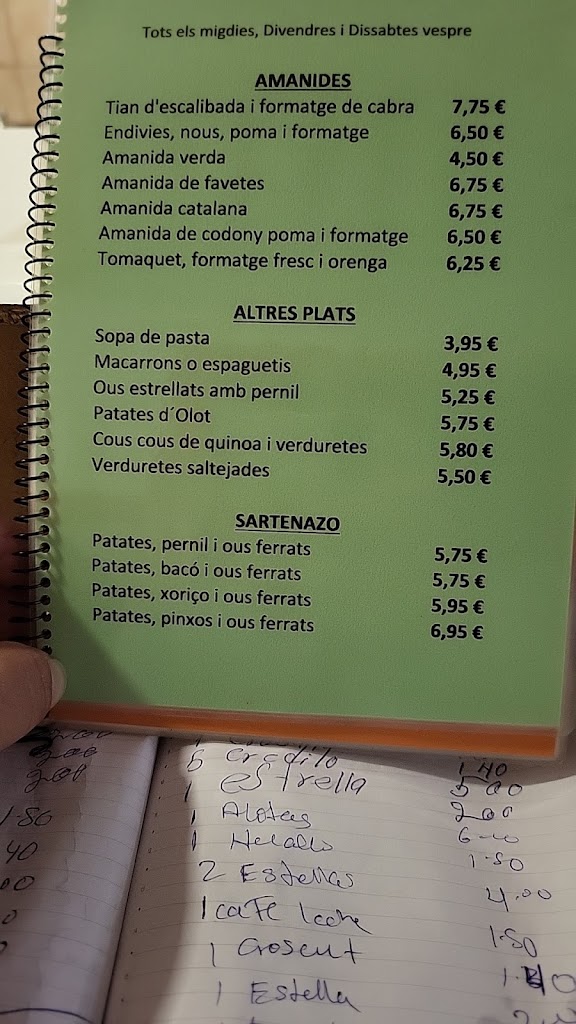 Tots els migdies, Divendres i Dissabtes vespre
AMANIDES
Tian d'escalibada i formatge de cabra 7,75 €
Endivies, nous, poma i formatge 6,50 €
Amanida verda 4,50 €
Amanida de favetes 6,75 €
Amanida catalana 6,75 €
Amanida de codony poma i formatge 6,50 €
Tomaquet, formatge fresc i orenga 6,25 €
ALTRES PLATS
Sopa de pasta 3,95 €
Macarrons o espaguetis 4,95 €
Ous estrellats amb pernil 5,25 €
Patates d´Olot 5,75 €
Cous cous de quinoa i verduretes 5,80 €
Verduretes saltejades 5,50 €
SARTENAZO
Patates, pernil i ous ferrats 5,75 €
Patates, bacó i ous ferrats 5,75 €
Patates, xoriço i ous ferrats 5,95 €
Patates, pinxos i ous ferrats 6,95 €
1·40
1 estrella
1 200
1
2 Estellas 4.00
1 caFE 1·50
1 Crosent
1 Estella